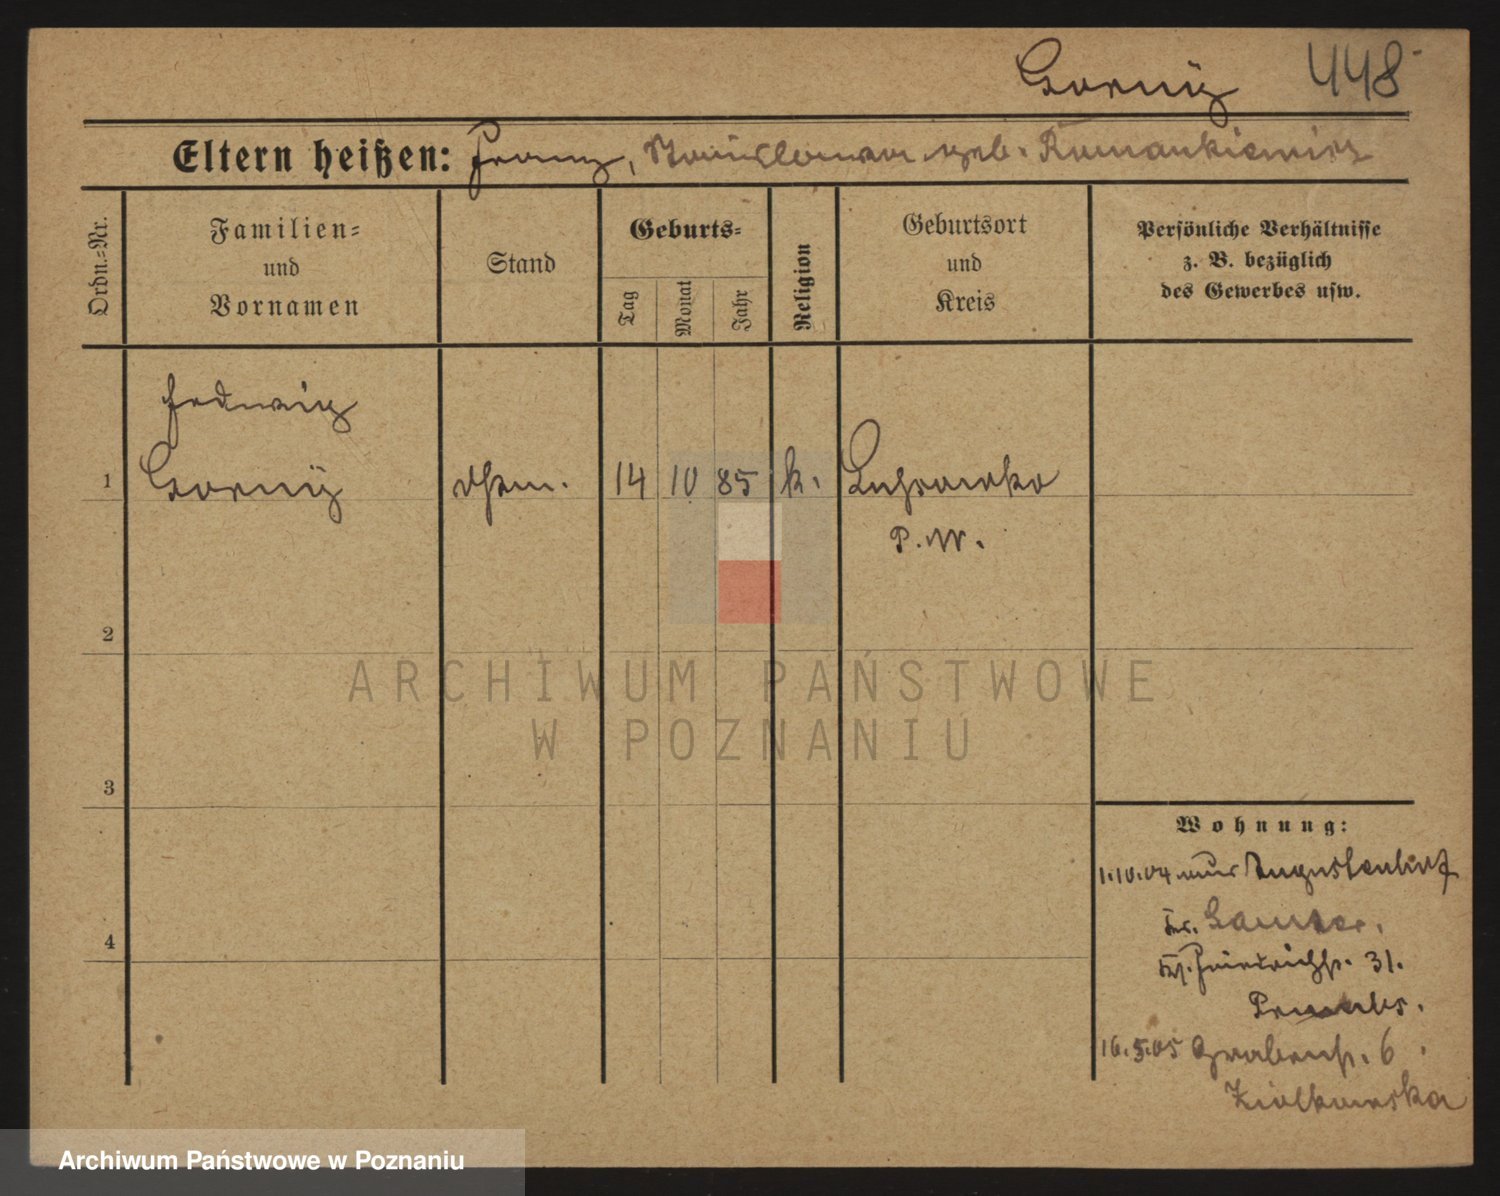 Gorny 448
Eltern heißen: Franz, Stanislawa geb. Romankiewicz
Ordn.-Nr.
Familien-
und
Vornamen
Stand
Geburts-
Tag
Monat
Jahr
Religion
Geburtsort
und
Kreis
Persönliche Verhältnisse
z. B. bezüglich
des Gewerbes usw.
Hedwig
1 Gorny 14 10 85 k.
P. W.
2
ARCHIWUM PAŃSTWOWE
W POZNANIU
3
Wohnung:
1.10.04
4
Friedrichstr. 31.
16.5.05 Grabenstr. 6
Ziolkowska
Archiwum Państwowe w Poznaniu